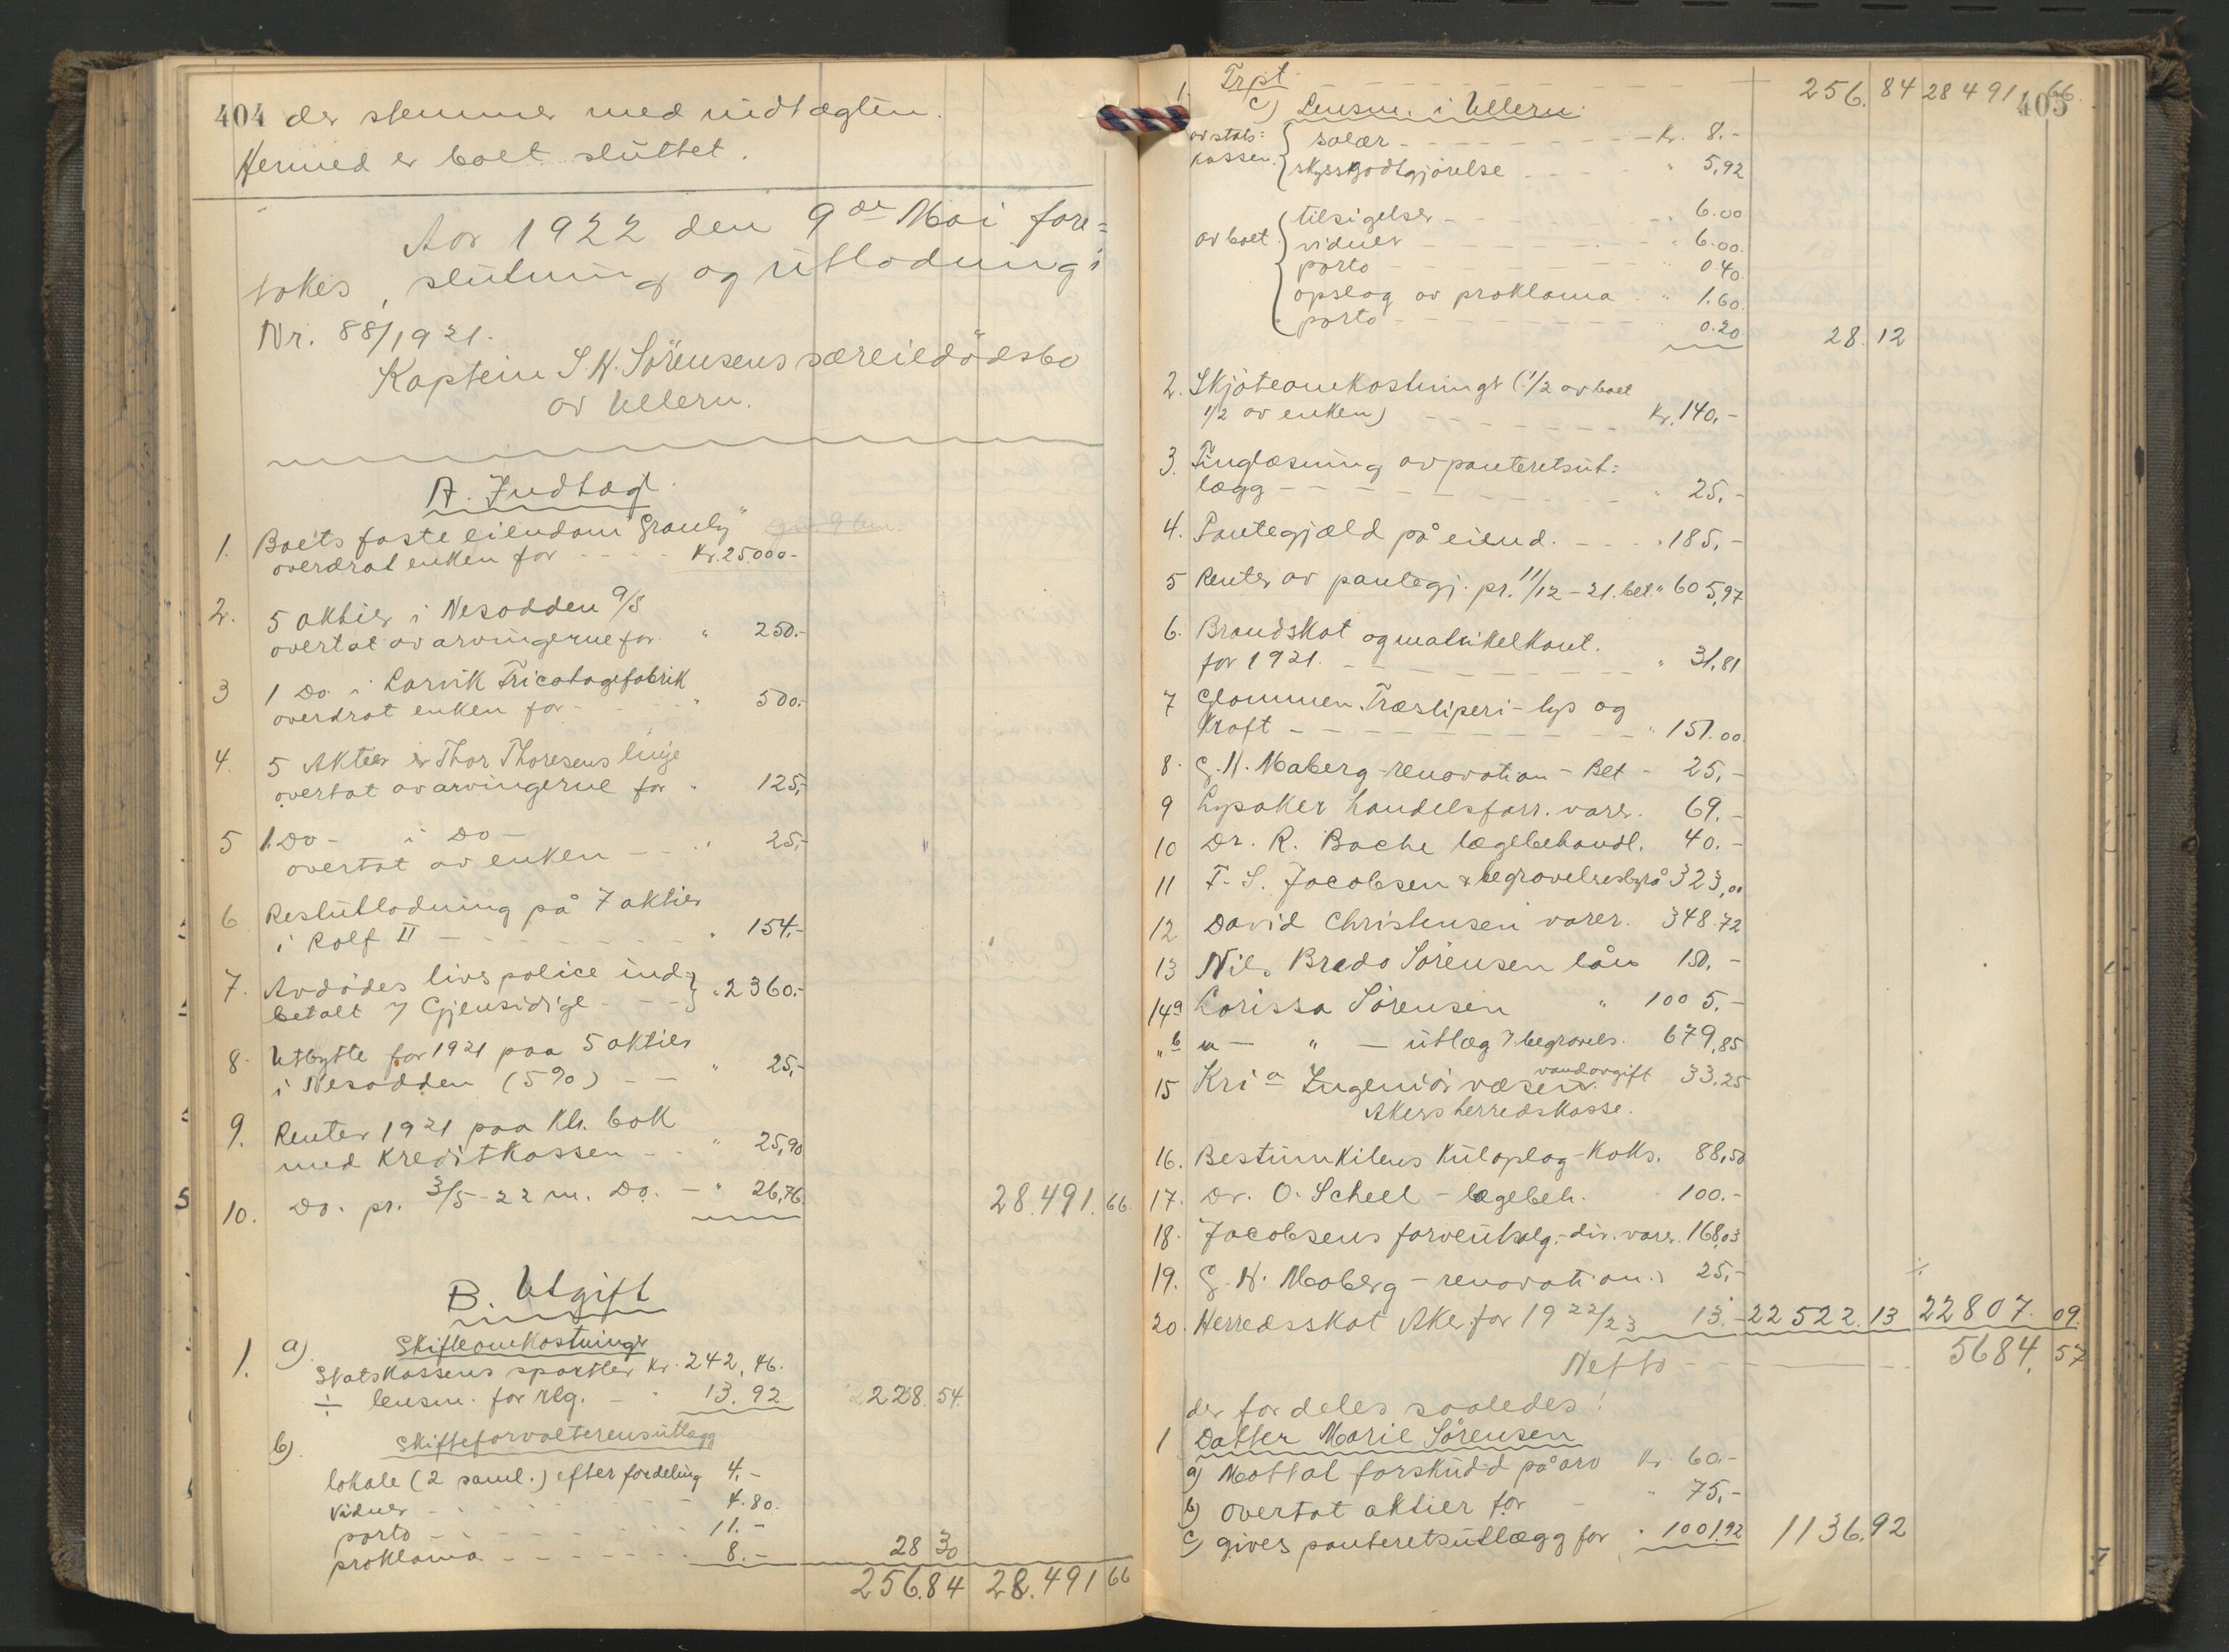 404 der stemmer med indtægten.
Hermed er boet sluttet.
Aar 1922 den 9de Mai fore=
tokes, slutning og utlodning i
Nr. 88/1921.
Kaptein S. H. Sörensens særeiedödsbo
av Ullern.
A. Indtægt.
1. Boets faste eiendom "Granly"
overdrat enken for - - - - Kr. 25000-
2. 5 aktier i Nesodden a/s
overtat av arvingerne for. " 250.-
3 1 Do. i Larvik Tricotagefabrik
overdrat enken for - - - " 500.-
4. 5 Aktier i Thor Thoresens linje
overtat av arvingerne for " 125,-
5 1. Do - i Do -
overtat av enken - - " 25,-
6 Restutlodning på 7 aktier
i Rolf II - - - - - - " 154.-
7. Avdödes livspolice ind-
betalt i Gjensidige - - - " 2360.-
8. Utbytte for 1921 paa 5 aktier
i Nesodden (5%) - - " 25,-
9. Renter 1921 paa Kt. bok
med Kreditkassen - - " 25,90
10. Do. pr. 3/5-22 m. Do. - " 26,76. 28.491. 66.
B. Utgift
1. a) Skifteomkostninger
Statskassens sportler Kr. 242,46.
÷ lensm. for rlg. - " 13.92 228. 54.
b) Skifteforvalterens utlægg
lokale (2 saml.) efter fordeling 4.-
Vidner - - - - - 4.80.
porto - - - - - - 11.-
proklama - - - - - - 8.- 28 30
256.84 28.491 66
Trpt. - - - - - 256. 84 28491 66. 405
c) Lensm. i Ullern.
av stats=
kassen.
salær - - - - - - - - Kr. 8.-
skyssgodtgjörelse - - - - " 5,92
av boet
tilsigelser - - - - - - " 6.00
vidner - - - - - - " 6.00.
porto - - - - - - - " 0.40.
opslag av proklama " 1.60.
porto - - - - - - - 0.20 28. 12
2. Skjöteomkostninger (1/2 av boet
1/2 av enken) - - - - - - Kr. 140,-
3. Tinglæsning av panteretsut=
lægg - - - - - - - - - " 25,-
4. Pantegjæld på eiend. - - - " 185,-
5 Renter av pantegj. pr. 11/12-21. bet. " 605,97
6. Brandskat og matrikelkont.
for 1921. - - - - - - - - " 31,81
7 Glommen Træsliperi - lys og
Kraft - - - - - - - - - " 151.00.
8. G. N. Maberg - renovation - Bet - 25,-
9 Lysaker handelsforr. varer. 69.-
10 Dr. R. Bache lægebehandl. 40.-
11 T. S. Jacobsen & begravelsesbyrå 323,00
12 David Christensen varer. 348.72
13 Nils Brado Sörensen lån 150.-
14a Larissa Sörensen " 1005.-
" b " - " - utlæg i begravels. 679,85
15 Kria Ingeniörvæsen vandavgift 33.25
Akers herredskasse.
16. Bestumkilens Kuloplag - Koks. 88,50
17. Dr. O. Scheel - lægebeh. 100.-
18. Jacobsens farveutsalg - div. varer. 168,03
19. G. N. Maberg - renovation. 25,-
÷
20. Herredsskat Aker for 1922/23 13.- 22522. 13 22807. 09.
Netto - - - 5684, 57
der fordeles saaledes!
1 Datter Marie Sörensen
a) Mottat forskudd på arv Kr. 60.-
b) Overtat aktier for - " 75,-
c) gives panteretsutlægg for " 1001.92 1136.92